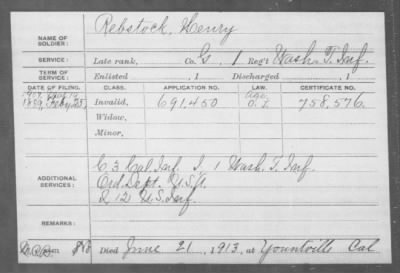 NAME OF SOLDIER: Rebstock, Henry
SERVICE: Late rank, Co. G, 1 Reg't Wash. T. Inf.
TERM OF SERVICE: Enlisted , 1 Discharged , 1
DATE OF FILING. CLASS. APPLICATION NO. LAW. CERTIFICATE NO.
1889, Feby 25 Invalid, 691,450 O.I. 758,576.
Widow,
Minor,
ADDITIONAL SERVICES: C 3 Cal. Inf. I. 1 Wash. T. Inf.
Ord. Dept. U.S.A.
& 12 U.S. Inf.
REMARKS:
Died June 21, 1913, at Yountville Cal